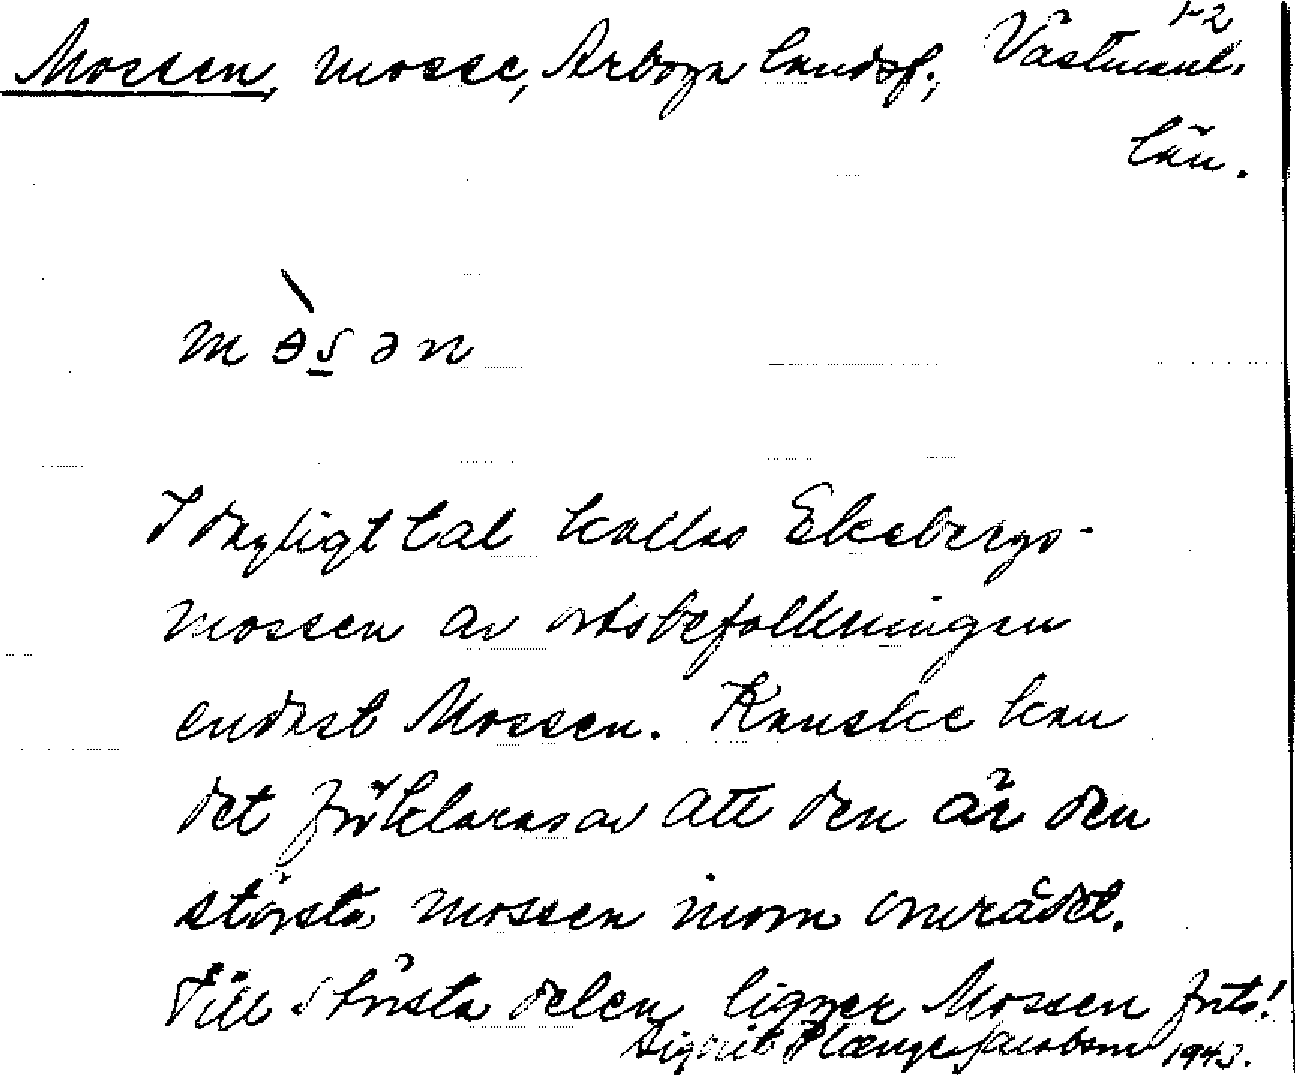 1-2
Mossen, mosse, Arboga landsf., Västmanl.
län.
mòsən
I dagligt tal kallas Ekebergs-
mossen av ortsbefolkningen
endast Mossen. Kanske kan
det förklaras av att den är den
största mossen inom området.
Till största delen ligger Mossen forts!
Sigrid Jacobson 1943.